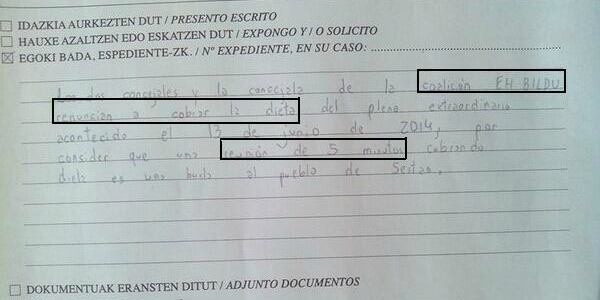 IDAZKIA AURKEZTEN DUT / PRESENTO ESCRITO
HAUXE AZALTZEN EDO ESKATZEN DUT / EXPONGO Y / O SOLICITO
EGOKI BADA, ESPEDIENTE-ZK. / Nº EXPEDIENTE, EN SU CASO:
Los dos concejales y la concejala de la coalición EH BILDU
renuncian a cobrar la dieta del pleno extraordinario
acontecido el 13 de junio de 2014, por
consider que una reunión de 5 minutos cobrando
dieta es una burla al pueblo de Sestao.
DOKUMENTUAK ERANSTEN DITUT / ADJUNTO DOCUMENTOS